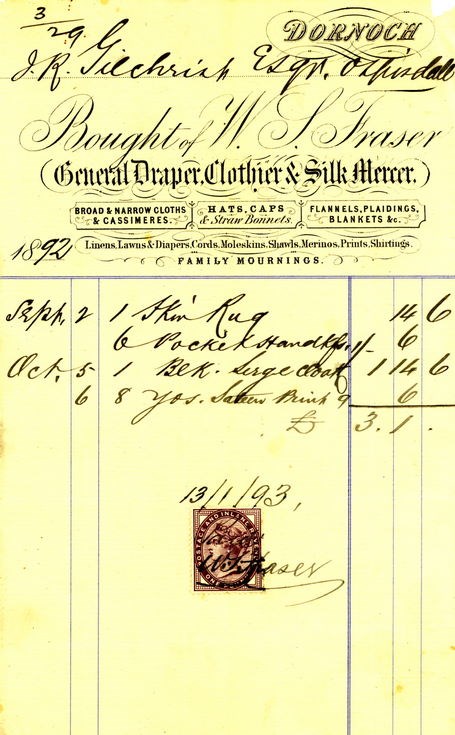 3/29
DORNOCH
J. R. Gilchrist Esqr. Ospisdall
Bought of W. S. Fraser
(General Draper, Clothier & Silk Mercer.)
BROAD & NARROW CLOTHS & CASSIMERES.
HATS, CAPS & Straw Bonnets.
FLANNELS, PLAIDINGS, BLANKETS &c.
1892
Linens, Lawns & Diapers, Cords, Moleskins, Shawls, Merinos, Prints, Shirtings.
FAMILY MOURNINGS.
Sept. 2 1 Skin Rug 14 6
6 Pocket Handkfs. 1/- 6
Oct. 5 1 Blk. Serge Cloak 1 14 6
6 8 Yds. Sateen Print 9 6
£ 3. 1.
13/1/93,
POSTAGE AND INLAND REVENUE
W S Fraser